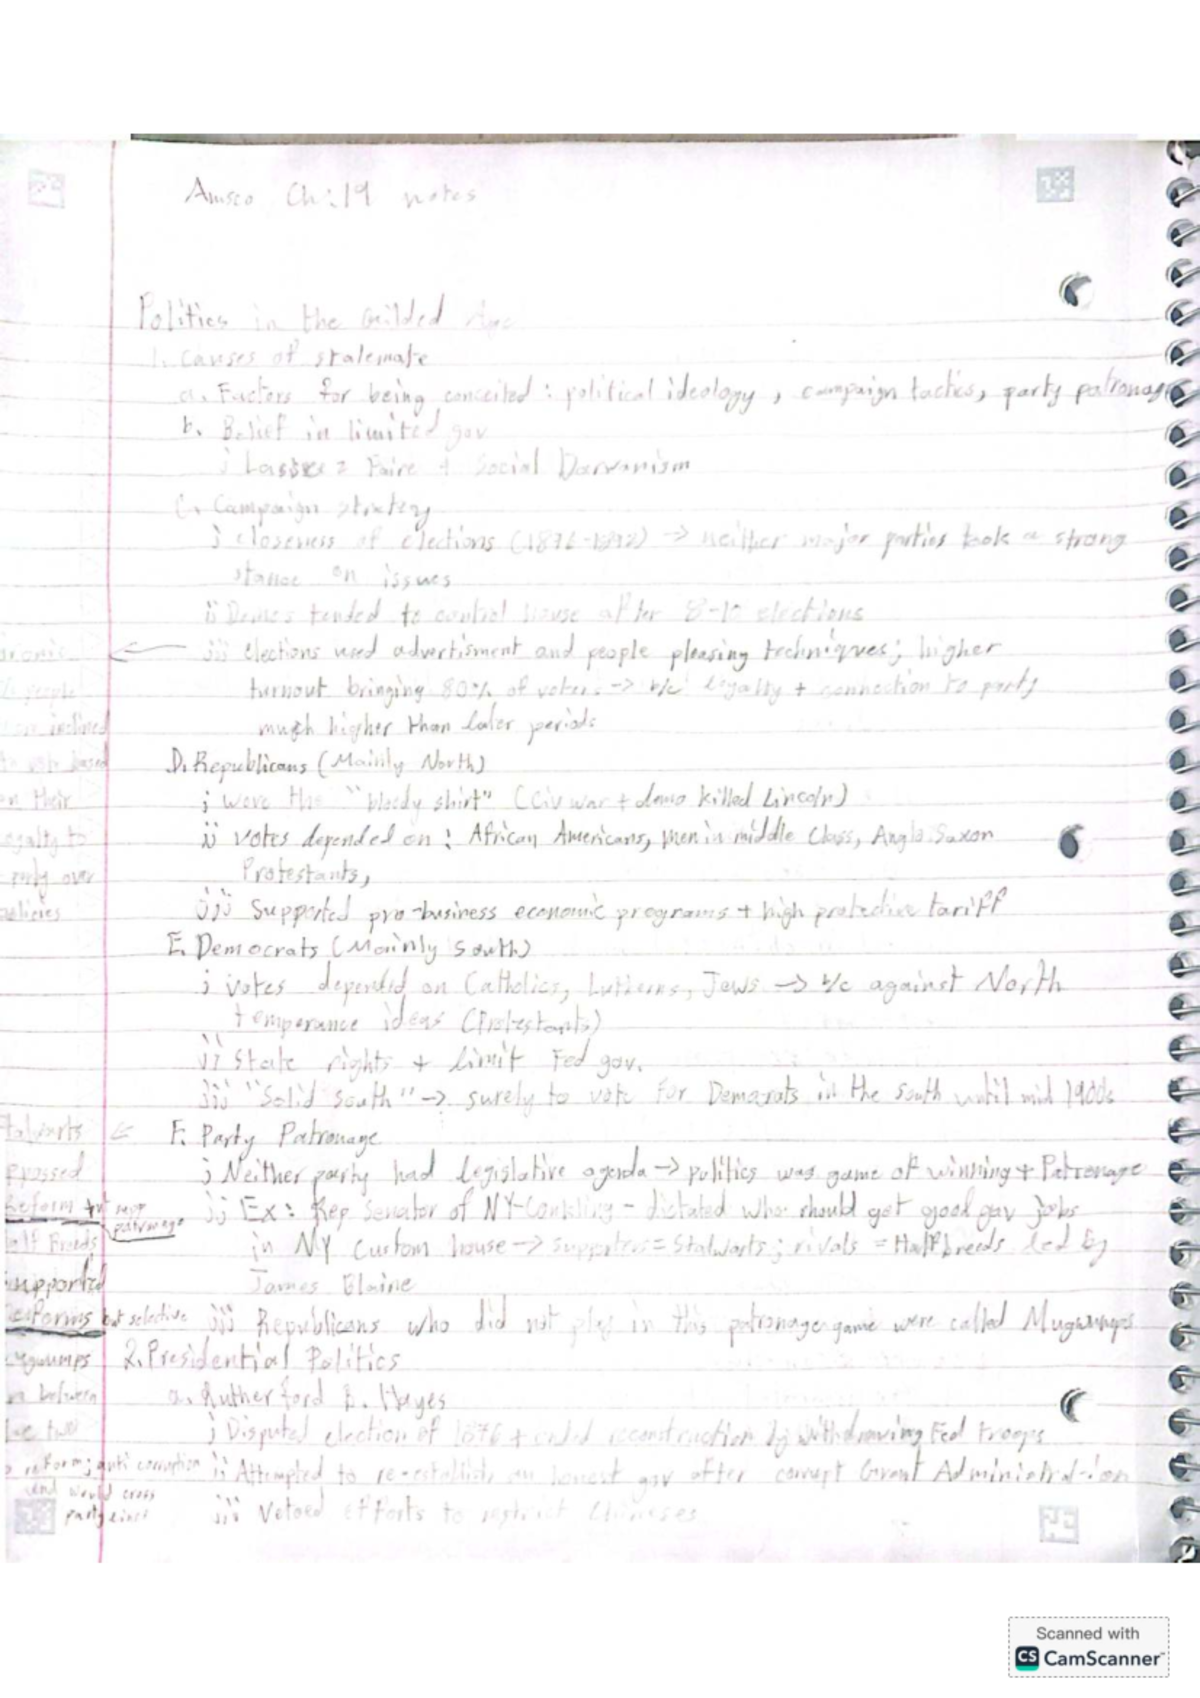 Amsco Ch:19 notes
Politics in the Guilded Age
1. Causes of stalemate
a. Factors for being conceited : political ideology , campaign tactics, party patronage
b. Belief in limited gov
i Faire + Social Darwanism
C. Campaign stratery
i closeness of elections (1876-1892) -> neither major parties took a strong
stance on issues
ii Demos tended to control house after 8-10 elections
iii elections used advertisment and people pleasing techniques; higher
turnout bringing 80% of voters -> b/c loyalty + connection to party
much higher than later periods
people
inclined
to vote based
on their
loyalty to
party over
policies
D. Republicans (Mainly North)
i wave the "bloody shirt" (Civ war + demo killed Lincoln)
ii votes depended on : African Americans, men in middle Class, Anglo Saxon
Protestants,
iii Supported pro-business economic programs + high protective tariff
E. Democrats (Mainly South)
i votes depended on Catholics, Lutherns, Jews -> b/c against North
temperance ideas (Protestants)
ii State rights + limit Fed gov.
iii "Solid South" -> surely to vote for Demacrats in the south until mid 1900s
F. Party Patronage
i Neither party had legislative agenda -> politics was game of winning + Patronage
ii Ex: Rep Senator of NY-Conkling - dictated who should get good gov jobs
in NY Custom house -> supporters = Stalwarts ; rivals = Halfbreeds led by
James Blaine
iii Republicans who did not play in this patronage game were called Mugwumps
talwarts
pposed
Reform + supp
patronage
alf Breeds
supported
reforms but selective
ugwumps
between
two
reform; anti corruption
and would cross
party lines
2. Presidential Politics
a. Rutherford B. Hayes
i Disputed election of 1876 + ended reconstruction by withdrawing Fed troops
ii Attempted to re-establish an honest gov after corrupt Grant Administration
iii Vetoed efforts to restrict Chineses
Scanned with
CS CamScanner